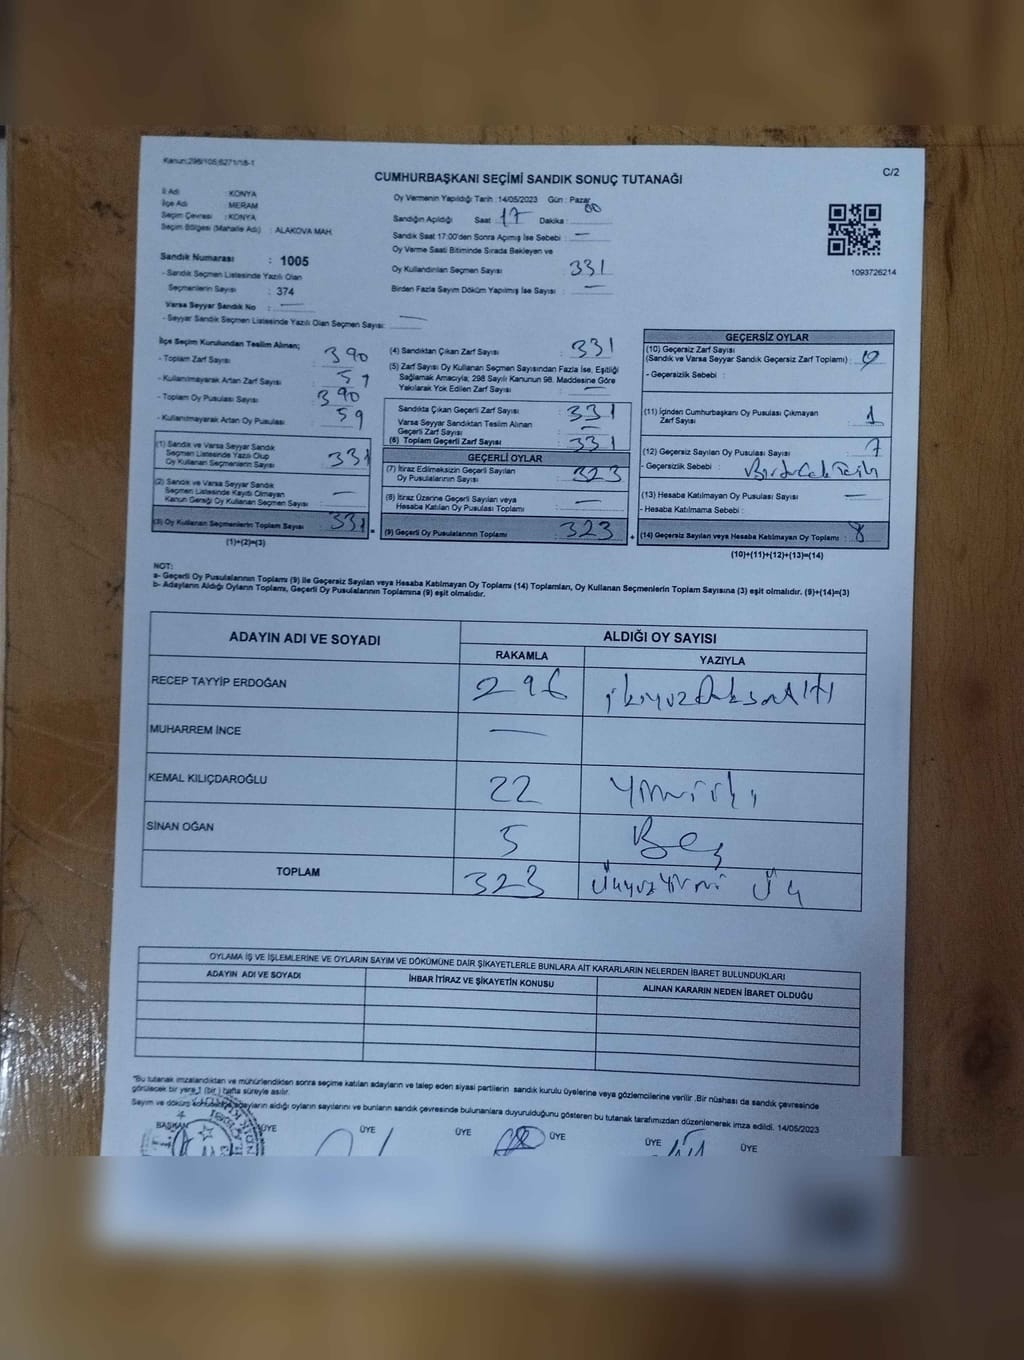 Kanun:298/105,6271/18-1
C/2
CUMHURBAŞKANI SEÇİMİ SANDIK SONUÇ TUTANAĞI
İl Adı : KONYA
İlçe Adı : MERAM
Seçim Çevresi : KONYA
Seçim Bölgesi (Mahalle Adı) : ALAKOVA MAH.
Oy Vermenin Yapıldığı Tarih : 14/05/2023 Gün : Pazar
Sandığın Açıldığı Saat : 17 Dakika : 00
Sandık Saat 17:00'den Sonra Açımış İse Sebebi : —
Oy Verme Saati Bitiminde Sırada Bekleyen ve
Oy Kullandırılan Seçmen Sayısı : 331
Birden Fazla Sayım Döküm Yapılmış İse Sayısı : —
1093726214
Sandık Numarası : 1005
- Sandık Seçmen Listesinde Yazılı Olan
Seçmenlerin Sayısı : 374
Varsa Seyyar Sandık No : —
- Seyyar Sandık Seçmen Listesinde Yazılı Olan Seçmen Sayısı: —
İlçe Seçim Kurulundan Teslim Alınan;
- Toplam Zarf Sayısı : 390
- Kullanılmayarak Artan Zarf Sayısı : 59
- Toplam Oy Pusulası Sayısı : 390
- Kullanılmayarak Artan Oy Pusulası : 59
(1) Sandık ve Varsa Seyyar Sandık
Seçmen Listesinde Yazılı Olup
Oy Kullanan Seçmenlerin Sayısı : 331
(2) Sandık ve Varsa Seyyar Sandık
Seçmen Listesinde Kayıtlı Olmayan
Kanun Gereği Oy Kullanan Seçmen Sayısı : —
(3) Oy Kullanan Seçmenlerin Toplam Sayısı : 331
(1)+(2)=(3)
(4) Sandıktan Çıkan Zarf Sayısı : 331
(5) Zarf Sayısı Oy Kullanan Seçmen Sayısından Fazla İse, Eşitliği
Sağlamak Amacıyla; 298 Sayılı Kanunun 98. Maddesine Göre
Yakılarak Yok Edilen Zarf Sayısı : —
Sandıkta Çıkan Geçerli Zarf Sayısı : 331
Varsa Seyyar Sandıktan Teslim Alınan
Geçerli Zarf Sayısı : —
(6) Toplam Geçerli Zarf Sayısı : 331
GEÇERLİ OYLAR
(7) İtiraz Edilmeksizin Geçerli Sayılan
Oy Pusulalarının Sayısı : 323
(8) İtiraz Üzerine Geçerli Sayılan veya
Hesaba Katılan Oy Pusulası Toplamı : —
(9) Geçerli Oy Pusulalarının Toplamı : 323
GEÇERSİZ OYLAR
(10) Geçersiz Zarf Sayısı
(Sandık ve Varsa Seyyar Sandık Geçersiz Zarf Toplamı) :
- Geçersizlik Sebebi :
(11) İçinden Cumhurbaşkanı Oy Pusulası Çıkmayan
Zarf Sayısı : 1
(12) Geçersiz Sayılan Oy Pusulası Sayısı : 7
- Geçersizlik Sebebi :
(13) Hesaba Katılmayan Oy Pusulası Sayısı : —
- Hesaba Katılmama Sebebi :
(14) Geçersiz Sayılan veya Hesaba Katılmayan Oy Toplamı : 8
(10)+(11)+(12)+(13)=(14)
NOT:
a- Geçerli Oy Pusulalarının Toplamı (9) ile Geçersiz Sayılan veya Hesaba Katılmayan Oy Toplamı (14) Toplamları, Oy Kullanan Seçmenlerin Toplam Sayısına (3) eşit olmalıdır. (9)+(14)=(3)
b- Adayların Aldığı Oyların Toplamı, Geçerli Oy Pusulalarının Toplamına (9) eşit olmalıdır.
ADAYIN ADI VE SOYADI
ALDIĞI OY SAYISI
RAKAMLA YAZIYLA
RECEP TAYYİP ERDOĞAN 296 ikiyüzdoksanaltı
MUHARREM İNCE —
KEMAL KILIÇDAROĞLU 22 Yirmiiki
SİNAN OĞAN 5 Beş
TOPLAM 323 Üçyüzyirmi Üç
OYLAMA İŞ VE İŞLEMLERİNE VE OYLARIN SAYIM VE DÖKÜMÜNE DAİR ŞİKAYETLERLE BUNLARA AİT KARARLARIN NELERDEN İBARET BULUNDUKLARI
ADAYIN ADI VE SOYADI İHBAR İTİRAZ VE ŞİKAYETİN KONUSU ALINAN KARARIN NEDEN İBARET OLDUĞU
"Bu tutanak imzalandıktan ve mühürlendikten sonra seçime katılan adayların ve talep eden siyasi partilerin sandık kurulu üyelerine veya gözlemcilerine verilir .Bir nüshası da sandık çevresinde
görülecek bir yere 1 (bir ) hafta süreyle asılır.
Sayım ve döküm adayların aldığı oyların sayılarını ve bunların sandık çevresinde bulunanlara duyurulduğunu gösteren bu tutanak tarafımızdan düzenlenerek imza edildi. 14/05/2023
BAŞKAN ÜYE ÜYE ÜYE ÜYE ÜYE ÜYE